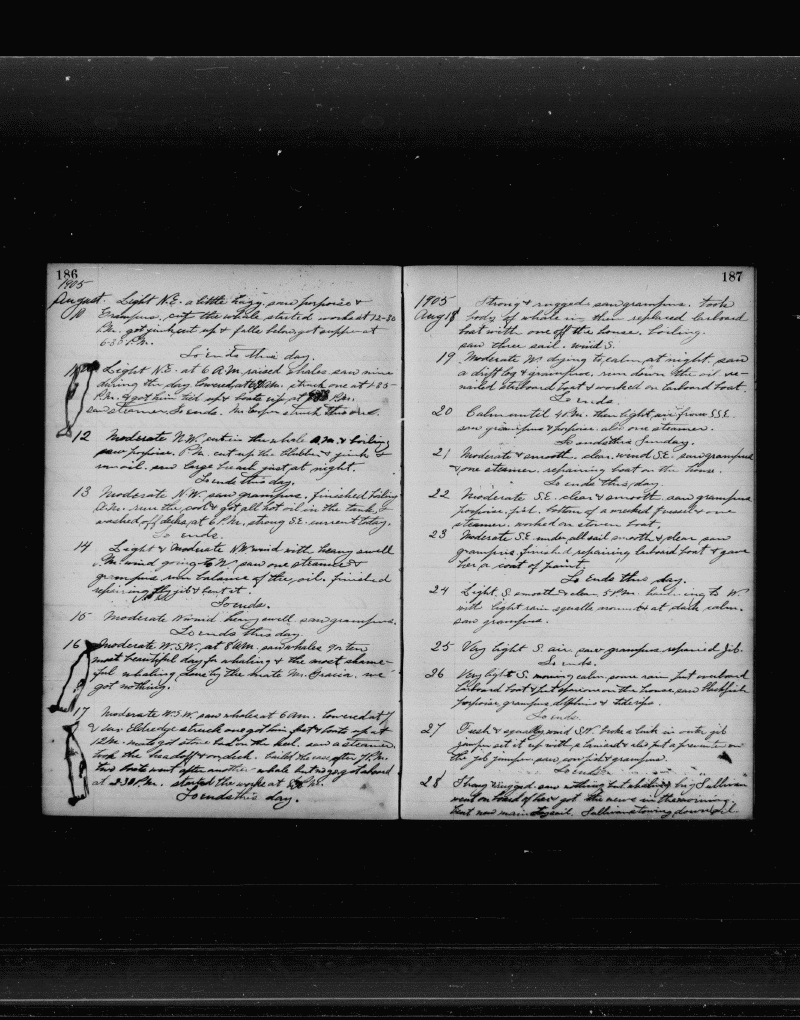 186
1905
August. Light N.E. a little hazy. saw porpoise &
10 Grampus, cut the whale started work at 12-30
P.M. got junk cut up & got supper at
6-30 P.M.
So ends this day.
11 Light N.E. at 6 A.M. raised whales saw nine
during the day lowered at struck one at
P.M. & got him tied up & boats up at P.M.
saw steamer So ends. Mr. Cooper struck this one.
12 Moderate N.W. cut in the whale A.M. & boiling
saw porpoise. P.M. cut up the blubber & junk &
run oil. saw large breach just at night.
So ends this day.
13 Moderate N.W. saw grampus, finished boiling
A.M. run the cool & got all hot oil in the tank, &
washed off decks, at 6 P.M. strong S.E. current today.
So ends.
14 Light & Moderate N.W. wind with heavy swell
P.M. wind going to N. saw one steamer &
grampus run balance of the oil. finished
repairing fly jib & bent it.
So ends.
15 Moderate N. wind heavy swell. saw grampus.
So ends this day
16 Moderate W.S.W. at 8 A.M. saw whales 9 or ten
most beautiful day for whaling & the most shame-
ful whaling done by the mate Mr. we
got nothing.
17 Moderate W.S.W. saw whale at 6 a.m. lowered at 7
& Mr. Eldredge struck one got him fast & boats up at
12 M. mate got stove bad on the keel. saw a steamer
took the head off & on deck. boiled the case after 7 P.M.
two boats went after another whale but no go got aboard
at 2-30 P.M. started the works at P.M.
So ends this day.
187
1905 Strong & rugged saw grampus. took
Aug 18 body of whale in, then replaced larboard
boat with one off the house, boiling.
saw three sail. wind S.
19 Moderate W. dying to calm, at night. saw
a drift log & grampus, run down the oil re-
nailed starboard boat & worked on larboard boat.
So ends.
20 Calm until 4 P.M. then light air from S.S.E.
saw grampus & porpoise. also one steamer.
So ends this Sunday.
21 Moderate & smooth. clear. wind S.E. saw grampus
& one steamer. repairing boat on the house.
So ends this day.
22 Moderate S.E. clear & smooth. saw grampus
porpoise, fish. bottom of a wrecked vessel & one
steamer. worked on stoven boat.
23 Moderate S.E. under all sail smooth & clear saw
grampus. finished repairing larboard boat & gave
her a coat of paint.
So ends this day.
24 Light S. smooth & clear, 5 P.M. hauling to W.
with light rain squalls around & at dark calm.
saw grampus.
25 Very light S. air. saw grampus repaired Jib.
So ends.
26 Very light S. morning calm some rain put overboard
larboard boat & put spare one on the house, saw blackfish
porpoise, grampus, dolphins &
So ends.
27 Fresh & squally wind S.W. broke a link in outer jib
jumper set it up with a lanyard & also put a preventer on
the jib jumper saw, sunfish & grampus.
So ends
28 Strong & rugged. saw nothing but whaling brig Sullivan
went on board of her & got the news in the morning
bent new main Topsail. Sullivan stowing down oil.